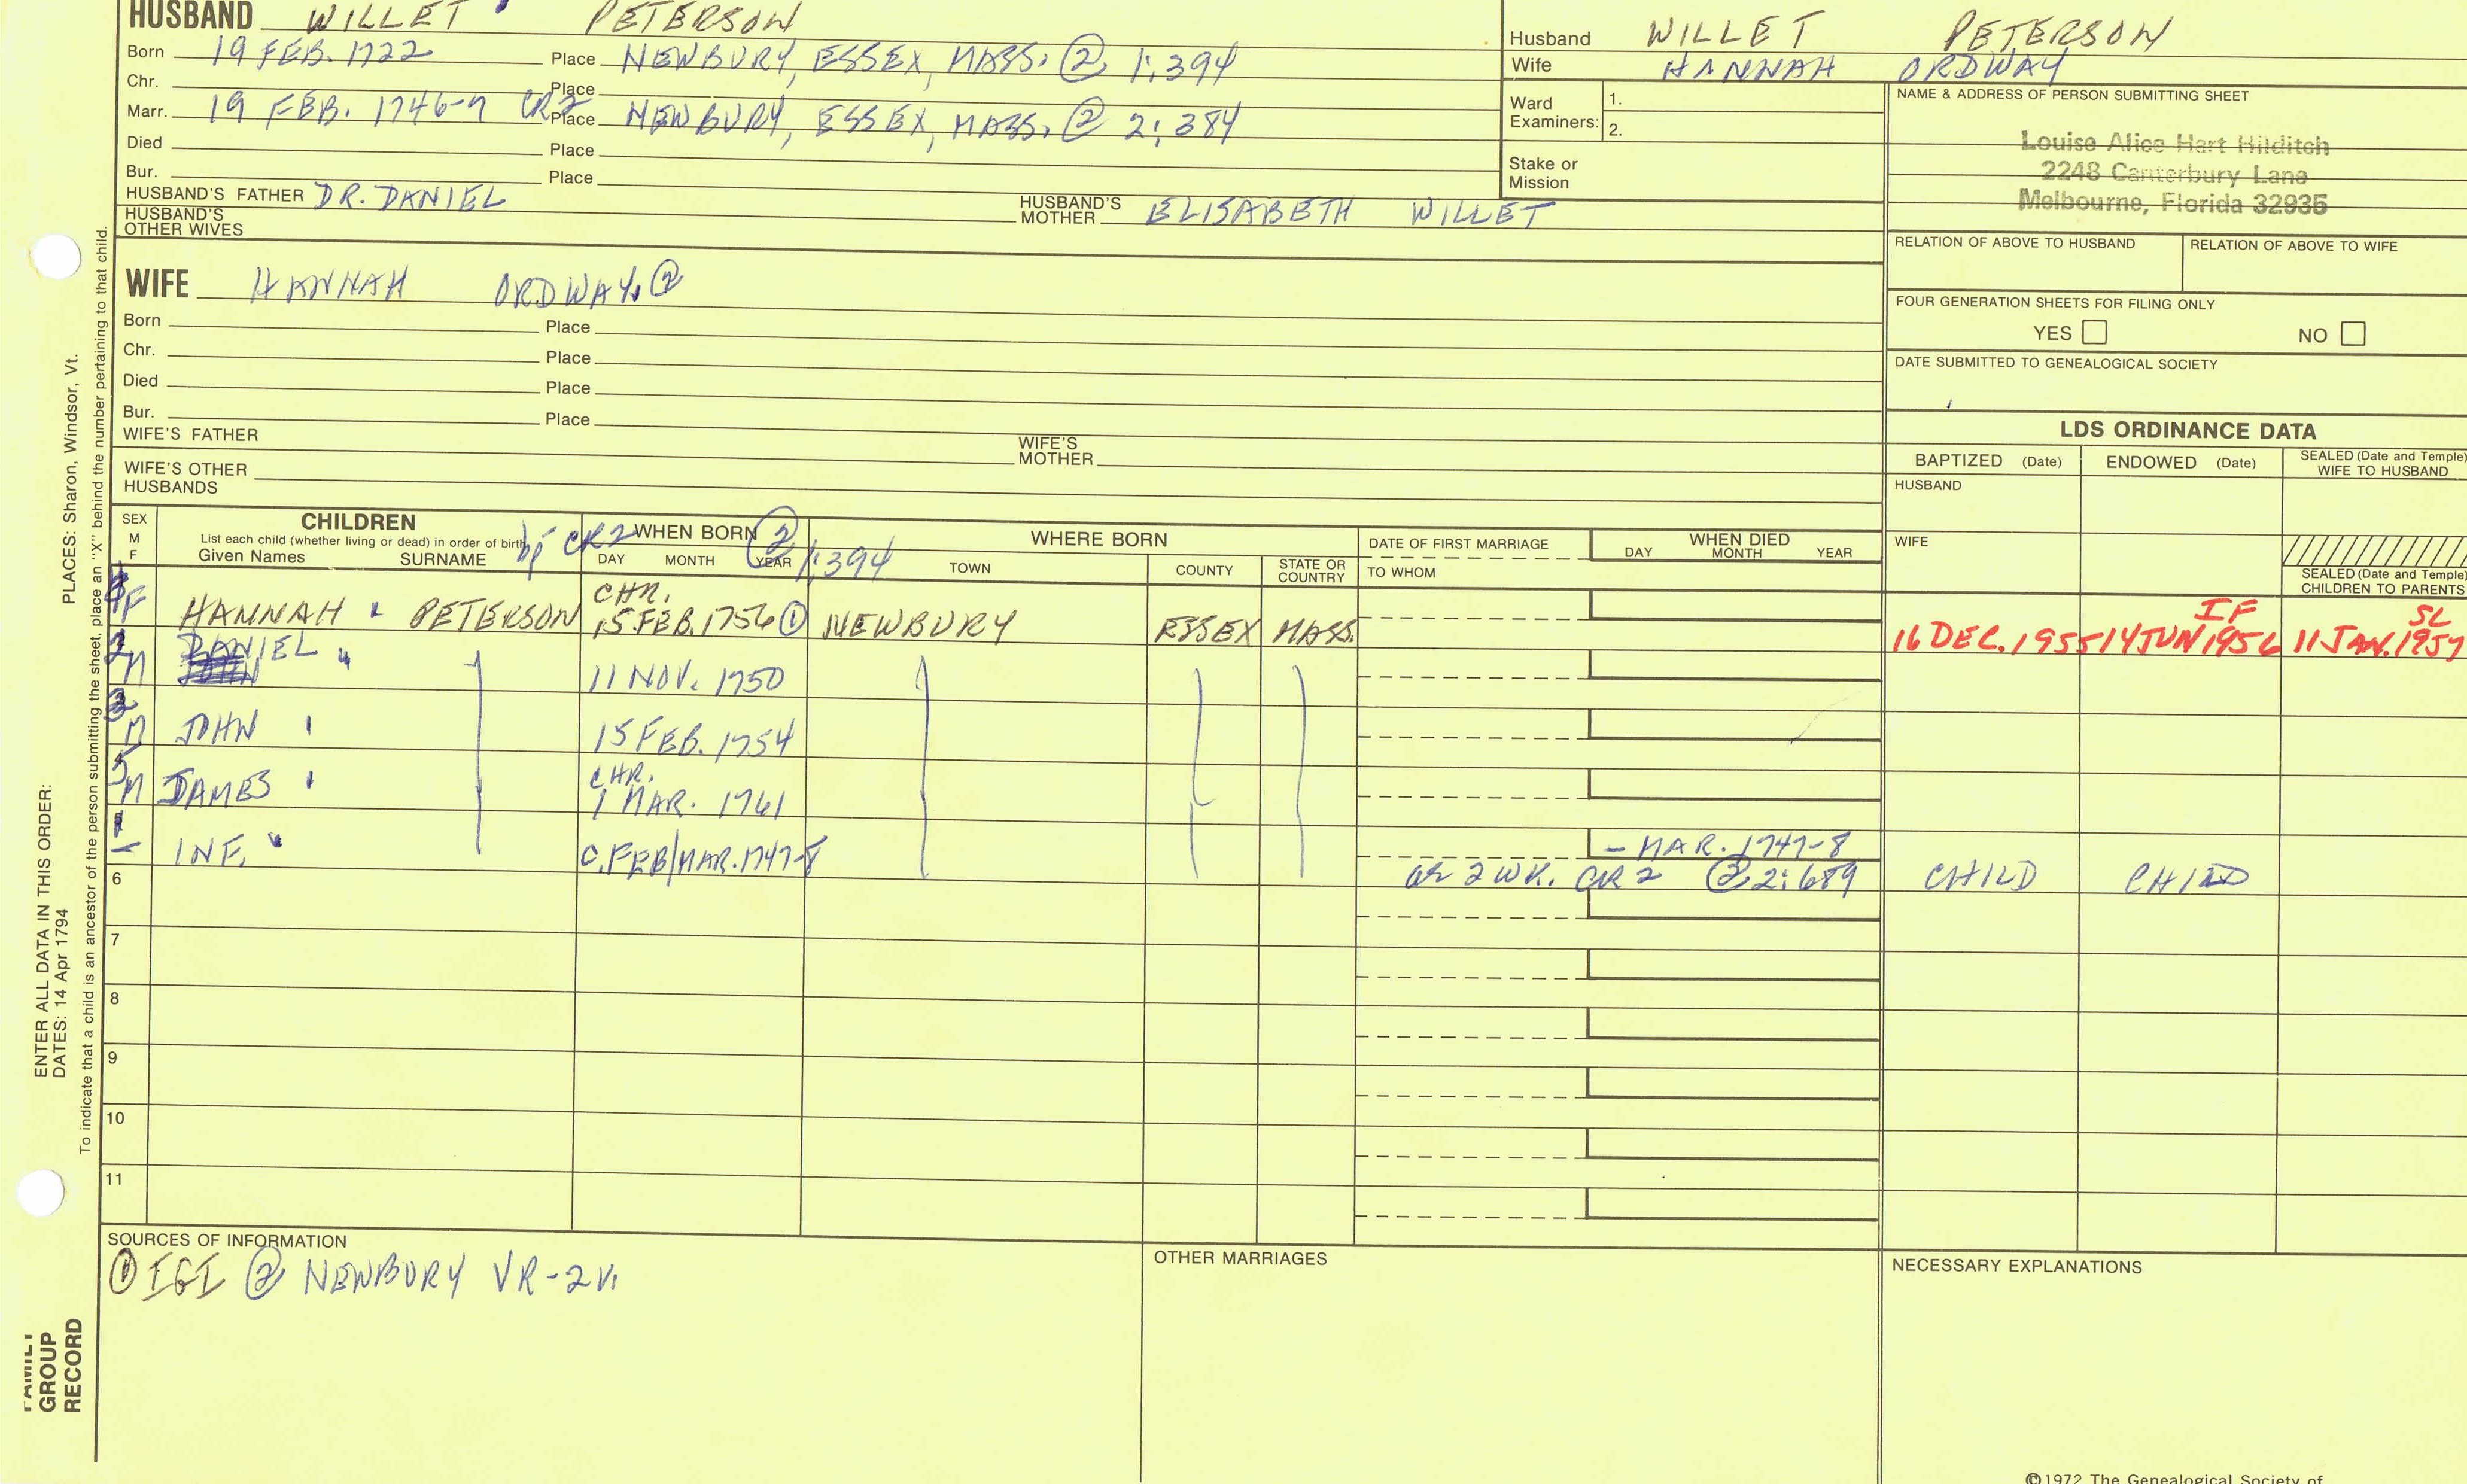 HUSBAND WILLET PETERSON
Born 19 FEB. 1722 Place NEWBURY, ESSEX, MASS. ② 1:394
Chr. Place
Marr. 19 FEB. 1746-7 CR2 Place NEWBURY, ESSEX, MASS. ② 2:384
Died Place
Bur. Place
HUSBAND'S FATHER DR. DANIEL HUSBAND'S MOTHER ELISABETH WILLET
HUSBAND'S OTHER WIVES
Husband WILLET PETERSON
Wife HANNAH ORDWAY
Ward Examiners: 1.
2.
Stake or Mission
NAME & ADDRESS OF PERSON SUBMITTING SHEET
Louise Alice Hart Hilditch
2248 Canterbury Lane
Melbourne, Florida 32935
RELATION OF ABOVE TO HUSBAND RELATION OF ABOVE TO WIFE
FOUR GENERATION SHEETS FOR FILING ONLY
YES NO
DATE SUBMITTED TO GENEALOGICAL SOCIETY
WIFE HANNAH ORDWAY. ②
Born Place
Chr. Place
Died Place
Bur. Place
WIFE'S FATHER WIFE'S MOTHER
WIFE'S OTHER HUSBANDS
LDS ORDINANCE DATA
BAPTIZED (Date) ENDOWED (Date) SEALED (Date and Temple) WIFE TO HUSBAND
HUSBAND
WIFE
SEALED (Date and Temple) CHILDREN TO PARENTS
SEX M F
CHILDREN
List each child (whether living or dead) in order of birth
Given Names SURNAME
CR2 WHEN BORN ② 1:394
DAY MONTH YEAR
WHERE BORN
TOWN COUNTY STATE OR COUNTRY
DATE OF FIRST MARRIAGE
TO WHOM
WHEN DIED
DAY MONTH YEAR
F HANNAH PETERSON CHR. 15 FEB. 1756 ① NEWBURY ESSEX MASS. 16 DEC. 1955 14 JUN 1956 IF 11 JAN. 1957 SL
2 M DANIEL " 11 NOV. 1750
3 M JOHN 15 FEB. 1754
5 M JAMES CHR. 1 MAR. 1761
1 – INF. " C. FEB/MAR. 1747-8 – MAR. 1747-8
6 2 WK. CR 2 ② 2:689 CHILD CHILD
7
8
9
10
11
SOURCES OF INFORMATION
① IGI ② NEWBURY VR-2V.
OTHER MARRIAGES
NECESSARY EXPLANATIONS
PLACES: Sharon, Windsor, Vt.
ENTER ALL DATA IN THIS ORDER:
DATES: 14 Apr 1794
To indicate that a child is an ancestor of the person submitting the sheet, place an "X" behind the number pertaining to that child.
FAMILY
GROUP
RECORD
©1972 The Genealogical Society of